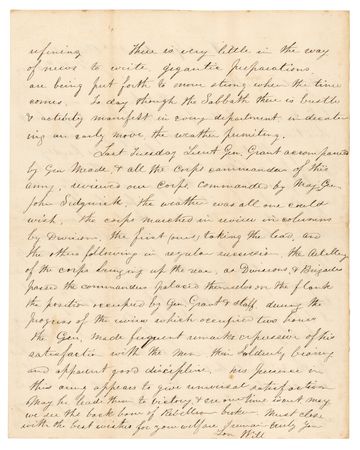 refining There is very little in the way
of news to write gigantic preparations
are being put forth to move strong when the time
comes. To day though the Sabbath there is bustle
& activity manifest in every department, indicat
ing an early move the weather permiting.
Last Tuesday Lieut Gen. Grant accompanied
by Gen Meade & all the Corps commanders of this
Army, reviewed our Corps, Commanded by Maj. Gen
John Sedgwick, the weather was all one could
wish. The corps marched in review in columns
by Division, the first (ours) taking the lead, and
the others following in regular succession, the Artillery
of the corps bringing up the rear, as Divisions & Brigades
passed the commanders placed themselves on the flank
the position occupied by Gen Grant & staff during the
progress of the review which occupied two hours
the Gen. made frequent remarks expressive of his
satisfaction with the men their soldierly bearing
and apparent good discipline. his presence in
this army appears to give universal satisfaction
May he lead them to victory, & ere our time is out may
we see the back bone of Rebellion broken. Must close
with the best wishes for your welfare I remain truly your
Son